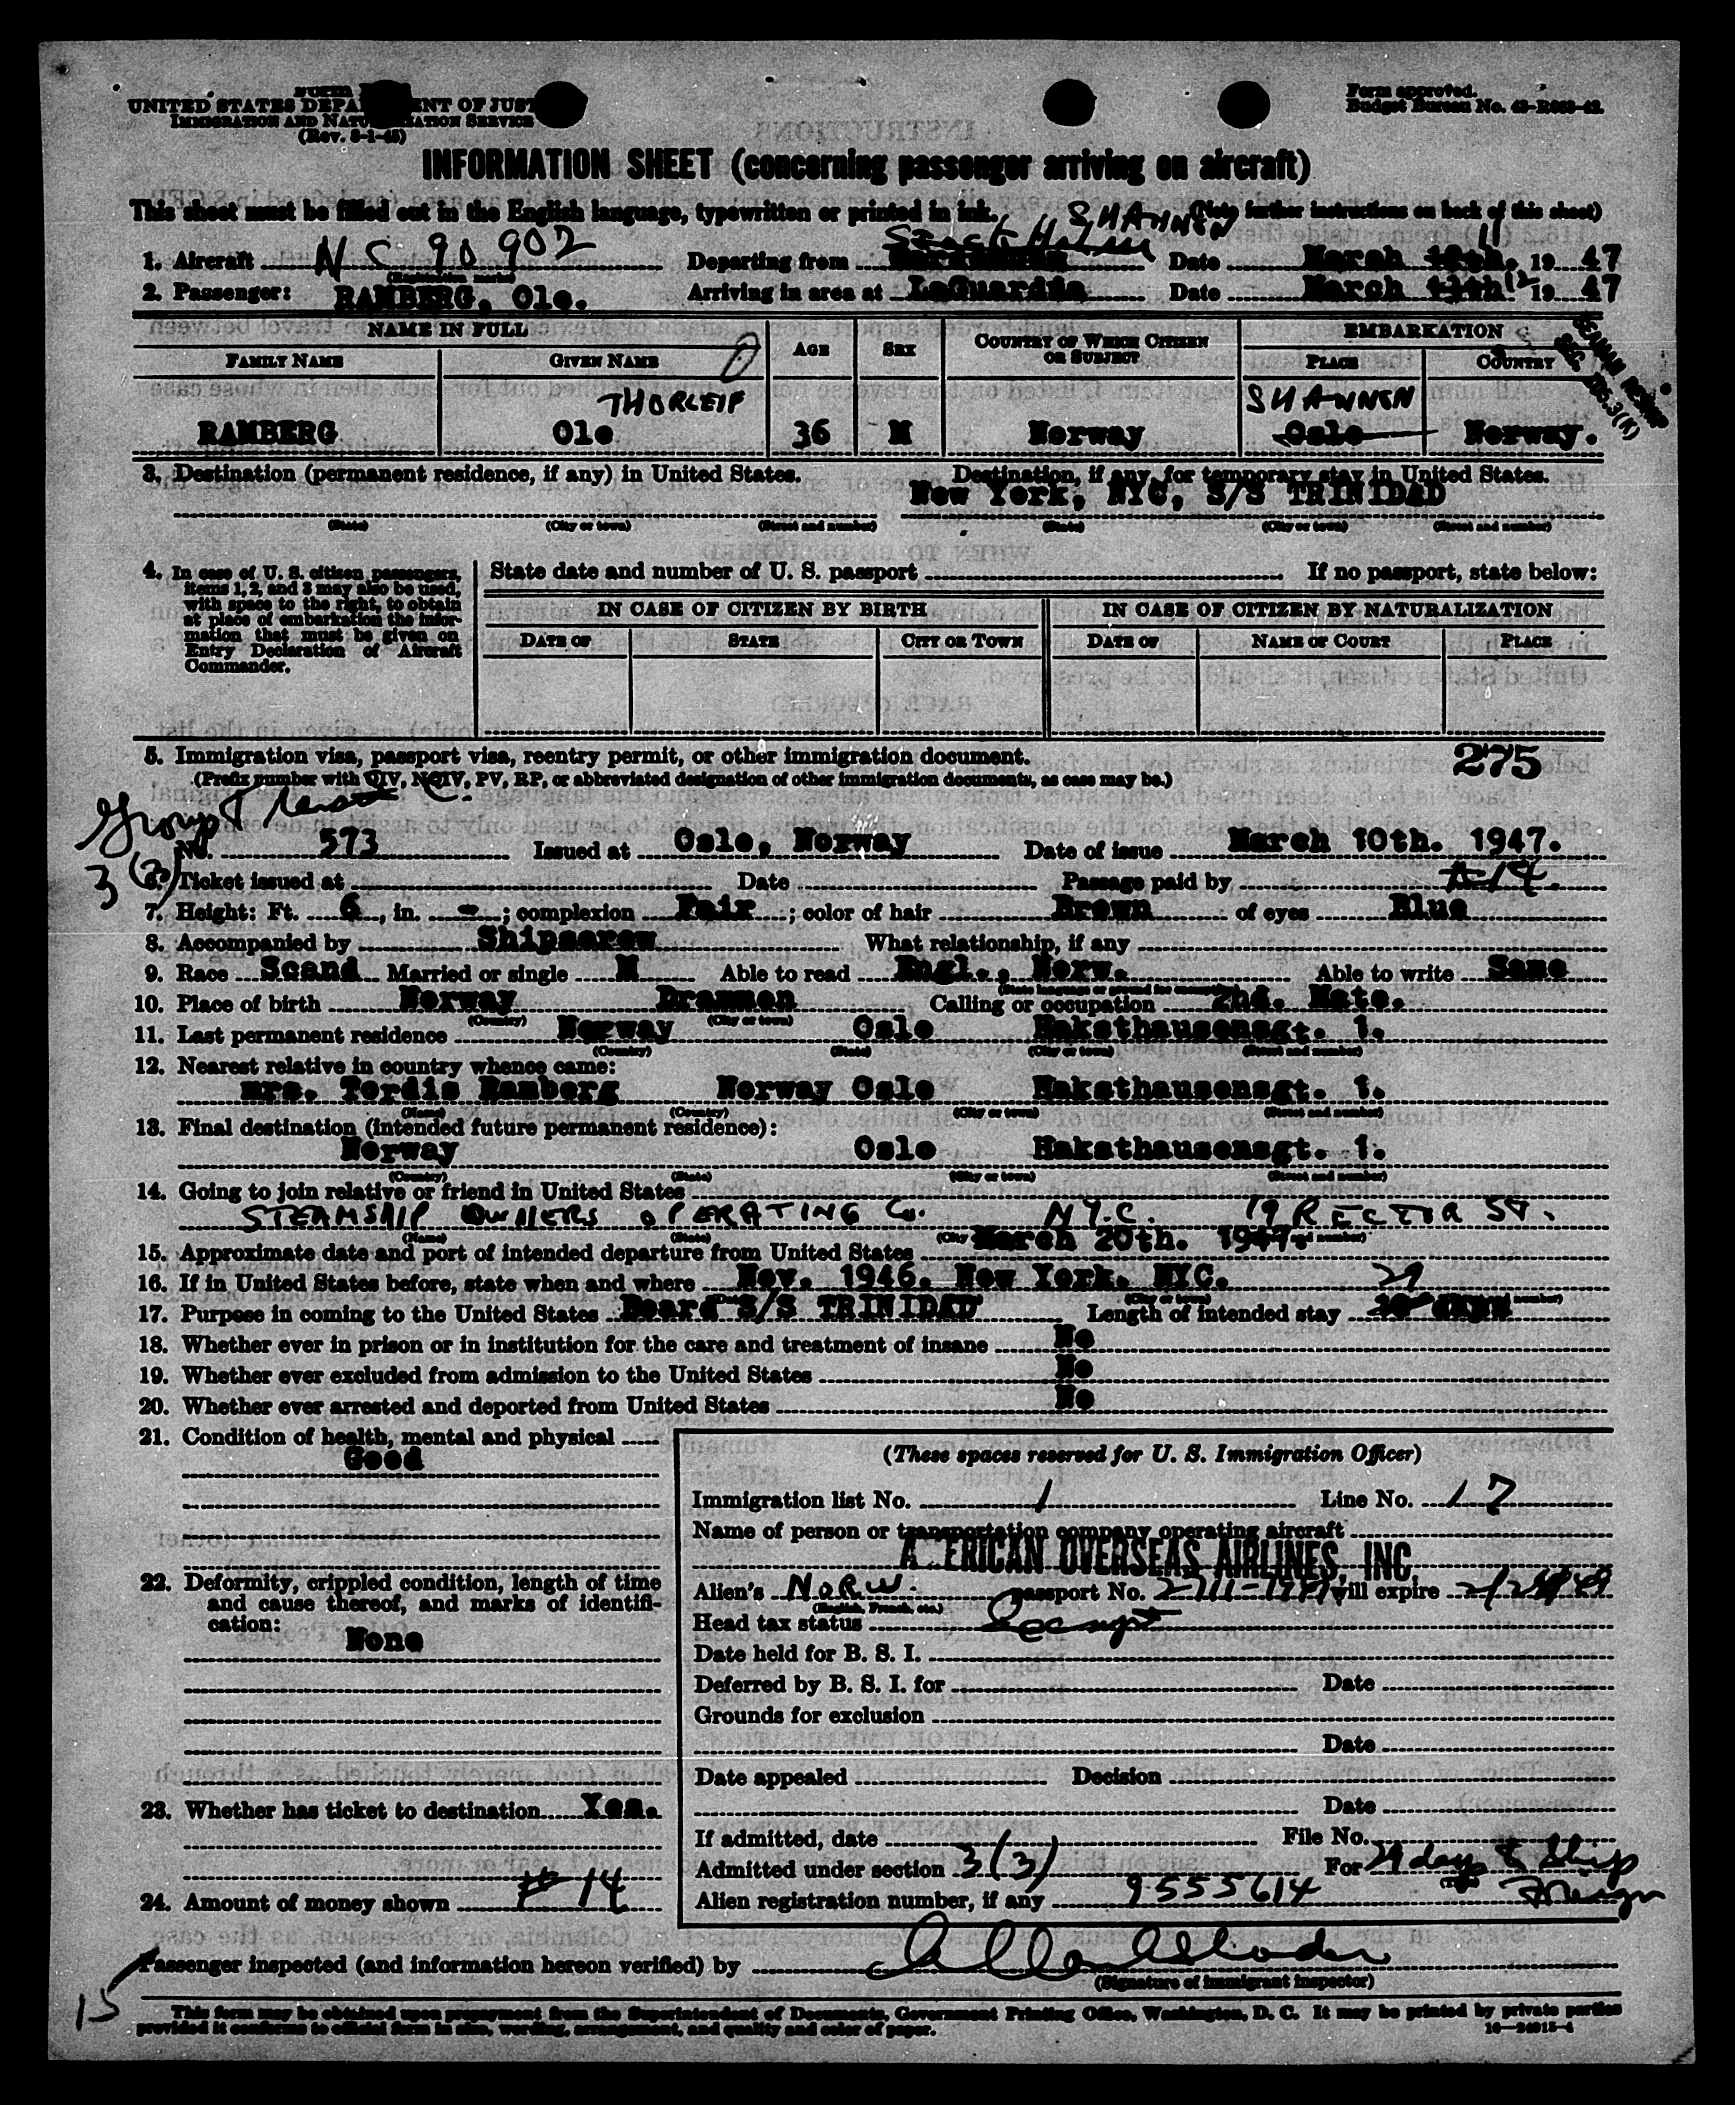 UNITED STATES DEPA ENT OF JUST
IMMIGRATION AND NATU ZATION SERVICE
(Rev. 8-1-45)
Form approved.
Budget Bureau No.
INFORMATION SHEET (concerning passenger arriving on aircraft)
This sheet must be filled out in the English language, typewritten or printed in ink. (Note further instructions on back of this sheet)
SHANNEN
1. Aircraft NC 90902 Departing from Date March 11 1947
(Registration marks)
2. Passenger: RAMBERG, Ole. Arriving in area at LaGuardia Date March 12 1947
NAME IN FULL AGE SEX COUNTRY OF WHICH CITIZEN OR SUBJECT EMBARKATION
FAMILY NAME GIVEN NAME PLACE COUNTRY
THORLEIF SHANNEN
RAMBERG Ole 36 M Norway Oslo Norway.
3. Destination (permanent residence, if any) in United States. Destination, if any, for temporary stay in United States.
New York, NYC, S/S TRINIDAD
(State) (City or town) (Street and number) (State) (City or town) (Street and number)
4. In case of U. S. citizen passengers, items 1, 2, and 3 may also be used, with space to the right, to obtain at place of embarkation the information that must be given on Entry Declaration of Aircraft Commander.
State date and number of U. S. passport If no passport, state below:
IN CASE OF CITIZEN BY BIRTH IN CASE OF CITIZEN BY NATURALIZATION
DATE OF STATE CITY OR TOWN DATE OF NAME OF COURT PLACE
5. Immigration visa, passport visa, reentry permit, or other immigration document. 275
(Prefix number with QIV, NQIV, PV, RP, or abbreviated designation of other immigration documents, as case may be.)
Group
3(3)
No. 573 Issued at Oslo, Norway Date of issue March 10th. 1947.
6. Ticket issued at Date Passage paid by
7. Height: Ft. 6, in. -; complexion Fair; color of hair Brown of eyes Blue
8. Accompanied by Shipscrew What relationship, if any
9. Race Scand Married or single M Able to read Engl., Norw. Able to write Same
(State language or ground for exemption)
10. Place of birth Norway Drammen Calling or occupation 2nd. Mate.
(Country) (City or town)
11. Last permanent residence Norway Oslo Haksthausensgt. 1.
(Country) (State) (City or town) (Street and number)
12. Nearest relative in country whence came:
mrs. Tordis Ramberg Norway Oslo Haksthausensgt. 1.
(Name) (Country) (City or town) (Street and number)
13. Final destination (intended future permanent residence):
Norway Oslo Haksthausensgt. 1.
(Country) (State) (City or town) (Street and number)
14. Going to join relative or friend in United States
STEAMSHIP OWNERS OPERATING Co. N.Y.C. 19 RECTOR ST.
(Name) (State) (City and number)
15. Approximate date and port of intended departure from United States March 20th. 1947.
16. If in United States before, state when and where Nov. 1946. New York. NYC.
29
17. Purpose in coming to the United States Board S/S TRINIDAD Length of intended stay days
18. Whether ever in prison or in institution for the care and treatment of insane No
19. Whether ever excluded from admission to the United States No
20. Whether ever arrested and deported from United States No
21. Condition of health, mental and physical
Good
22. Deformity, crippled condition, length of time and cause thereof, and marks of identification:
None
23. Whether has ticket to destination Yes.
24. Amount of money shown 14
(These spaces reserved for U. S. Immigration Officer)
Immigration list No. 1 Line No. 17
Name of person or transportation company operating aircraft
A ERICAN OVERSEAS AIRLINES, INC.
Alien's NORW. passport No. will expire
(English, French, etc.)
Head tax status
Date held for B. S. I.
Deferred by B. S. I. for Date
Grounds for exclusion
Date
Date appealed Decision
Date
If admitted, date File No.
Admitted under section 3(3) For 29 days Ship
(Time)
Foreign
Alien registration number, if any 9555614
Passenger inspected (and information hereon verified) by
(Signature of immigrant inspector)
15
This form may be obtained upon prepayment from the Superintendent of Documents, Government Printing Office, Washington, D. C. It may be printed by private parties
provided it conforms to official form in size, wording, arrangement, and quality and color of paper.